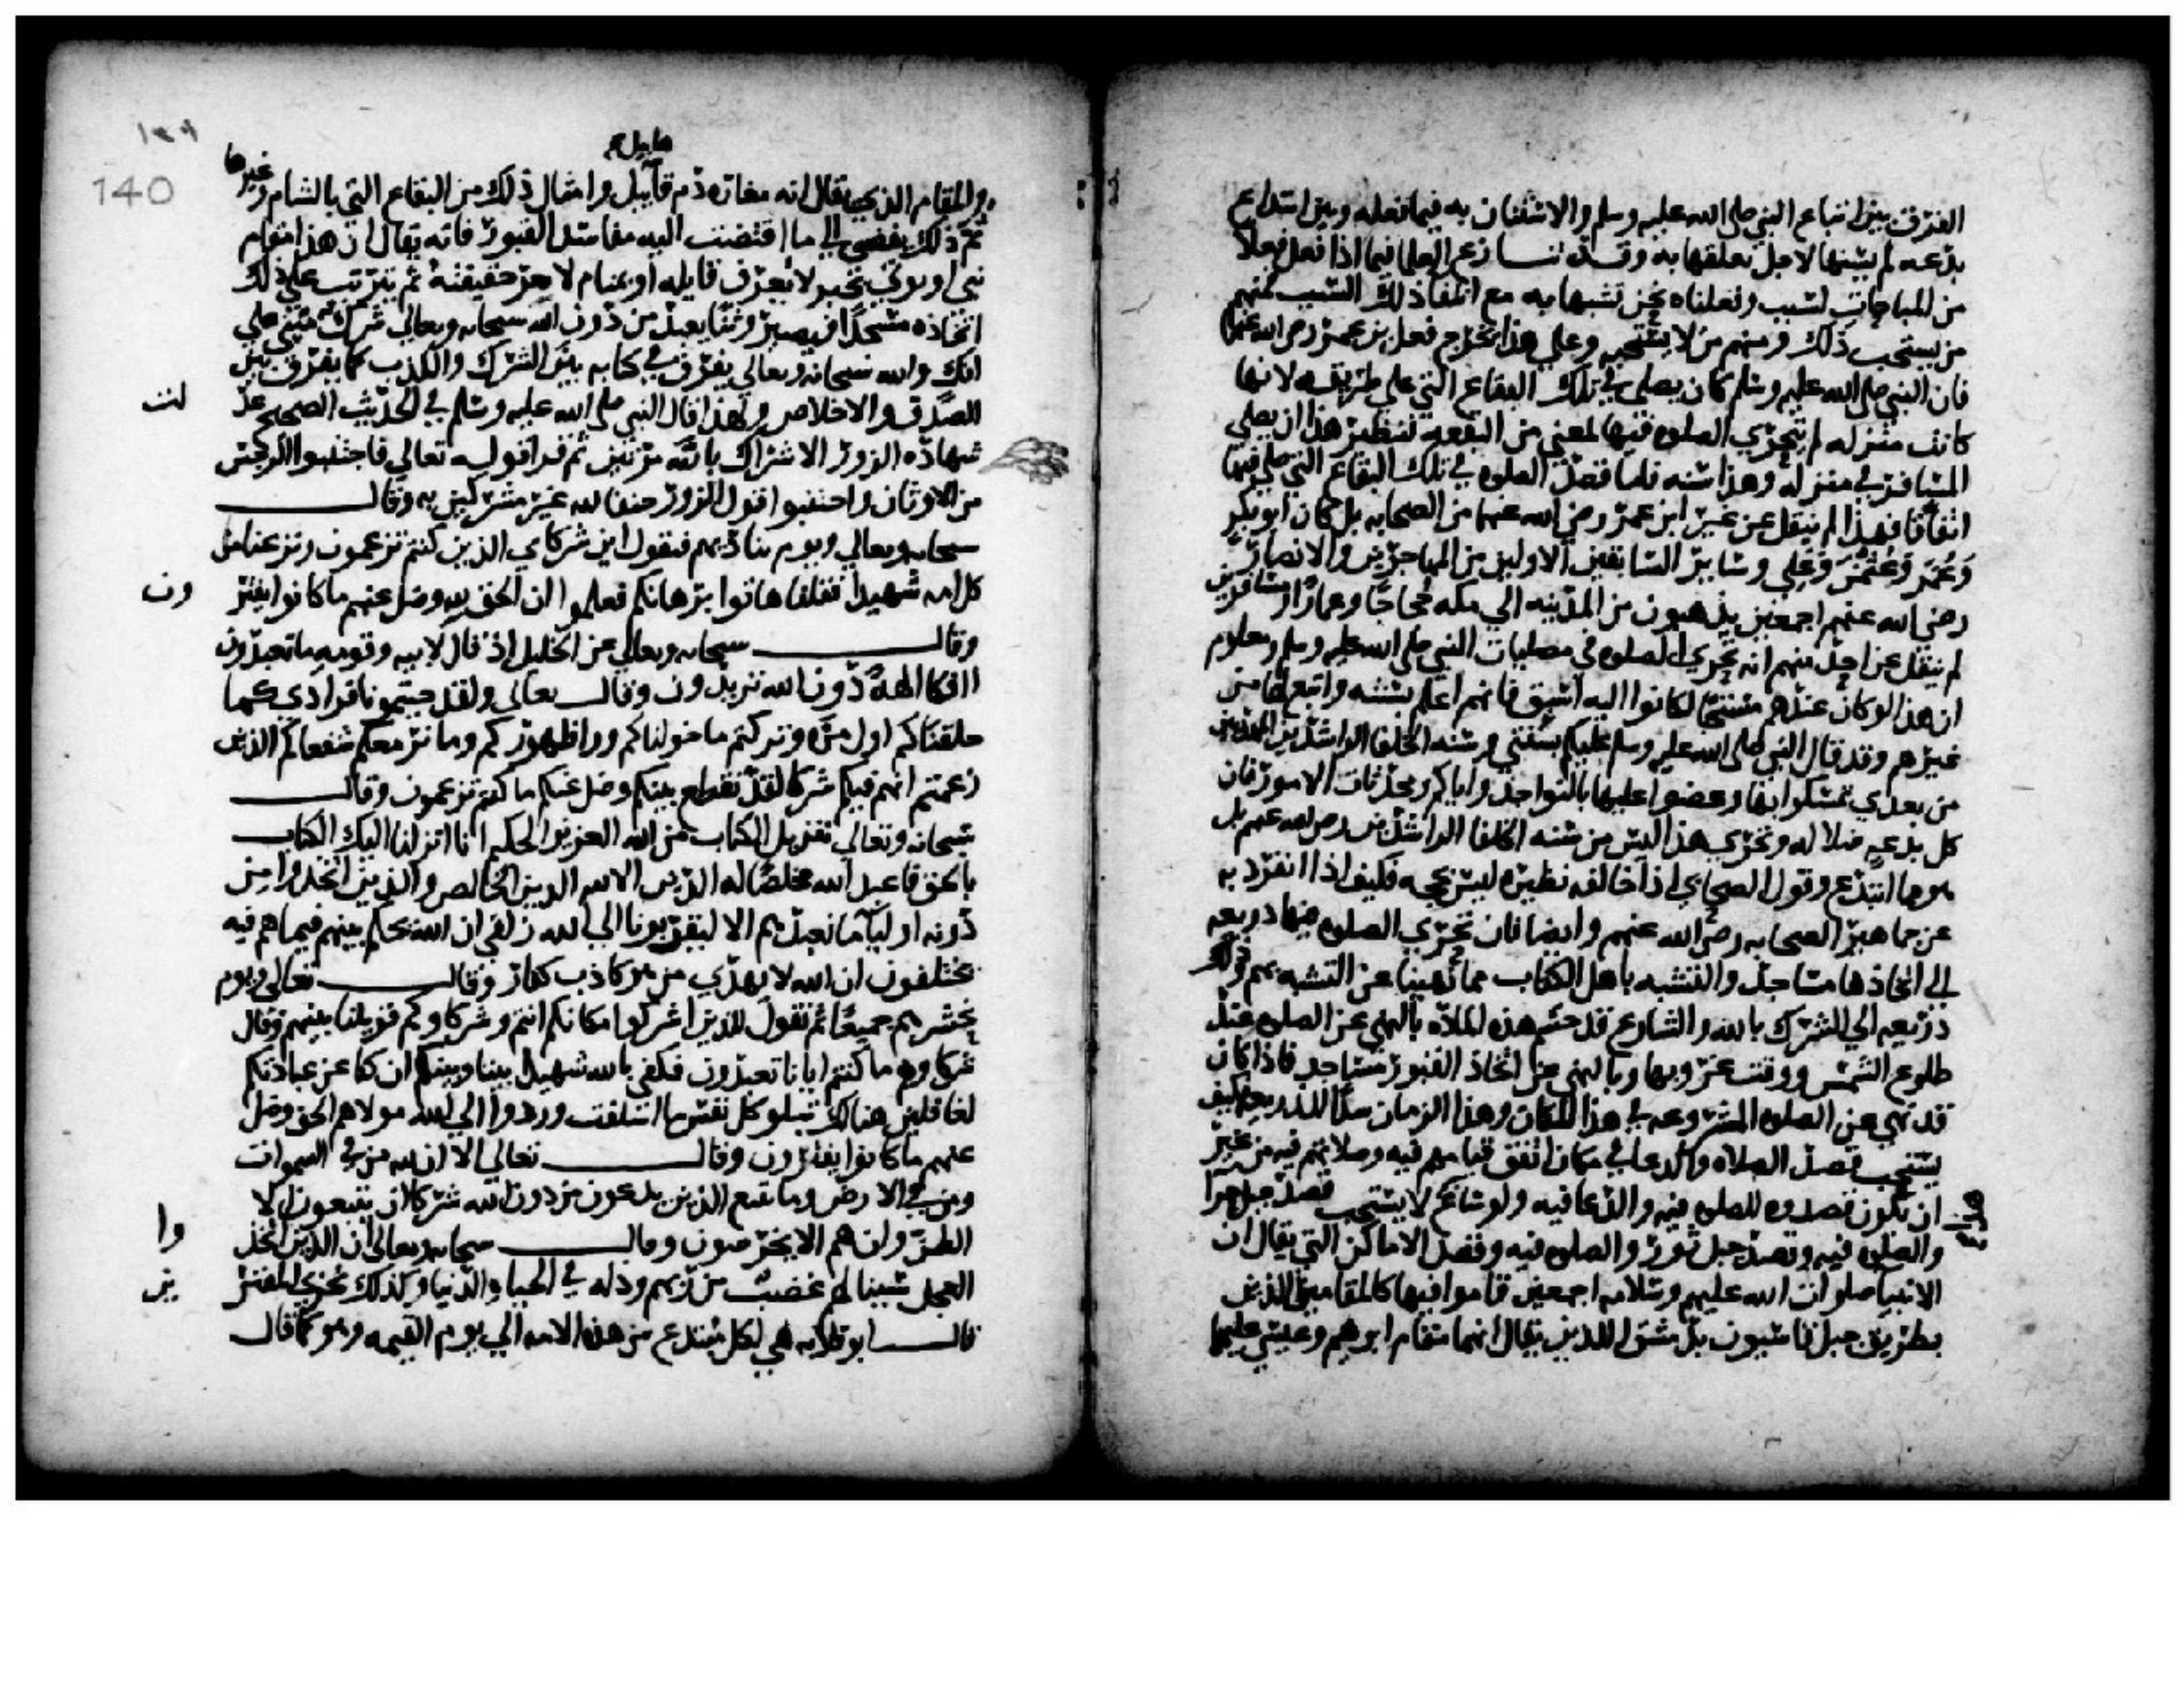 الفرق بين اتباع النبي صلى الله عليه وسلم والاستنان به فيما فعله وبين ابتداع
بدعه لم يسنها لاجل تعلقها به وقد تنازع العلما فيما اذا فعل فعلا
من المباحات لسبب وفعلناه نحن تشبها به مع انتفا ذلك السبب فمنهم
من يستحب ذلك ومنهم من لا يستحبه وعلى هذا يخرج فعل بن عمر رضى الله عنهما
فان النبي صلى الله عليه وسلم كان يصلي في تلك البقاع التي على طريقه لانها
كانت منزله لم يتحري الصلوه فيها لمعنى من البقعه فنظير هذا ان يصلي
المسافر في منزله وهذا سنه فاما قصد الصلوه في تلك البقاع التي صلى فيها
اتفاقا فهذا لم ينقل عن غير ابن عمر رضي الله عنهما من الصحابه بل كان ابو بكر
وعمر وعثمن وعلي وساير السابقين الاولين من المهاجرين والانصار
رضي الله عنهم اجمعين يذهبون من المدينه الي مكه حجاجا وعمارا ومسافرين
لم ينقل عن احد منهم انه تحري الصلوه في مصليات النبي صلى الله عليه وسلم ومعلوم
ان هذا لو كان عندهم مستحبا لكانوا اليه اسبق فانهم اعلم بسنته واتبع لها من
غيرهم وقد قال النبي صلى الله عليه وسلم عليكم بسنتي وسنه الخلفا الراشدين المهديين
من بعدي تمسكوا بها وعضوا عليها بالنواجذ واياكم ومحدثات الامور فان
كل بدعه ضلاله وتحري هذا ليس من سنه الخلفا الراشدين رضى الله عنهم بل
هو مما ابتدع وقول الصحابي اذا خالفه نظيره ليس بحجه فكيف اذا انفرد به
عن جماهير الصحابه رضى الله عنهم وايضا فان تحري الصلوه فيها ذريعه
الى اتخاذها مساجد والتشبه باهل الكتاب مما نهينا عن التشبه بهم وذلك
ذريعه الي الشرك بالله والشارع قد حسم هذه الماده بالنهي عن الصلوه عند
طلوع الشمس ووقت غروبها وبالنهي عن اتخاذ القبور مساجد فاذا كان
قد نهي عن الصلوه المشروعه في هذا المكان وهذا الزمان سدا للذريعه فكيف
يستحب قصد الصلاه والدعا في مكان اتفق قيامهم فيه وصلاتهم فيه من غير
ان يكون قصدوه للصلوه فيه والدعا فيه ولو شاع هذا لاستحب قصد جبل حرا
والصلوه فيه وقصد جبل ثور والصلوه فيه وقصد الاماكن التي يقال ان
الانبيا صلوات الله عليهم وسلامه اجمعين قاموا فيها كالمقامين الذين
بطريق جبل قاسيون بدمشق اللذين يقال انهما مقام ابرهيم وعيسى عليهما
١٣٩
140
هابيل
والمقام الذي يقال انه مغاره دم قابيل وامثال ذلك من البقاع التي بالشام وغيرها
ثم ذلك يفضي الى ما افضت اليه مفاسد القبور فانه يقال ان هذا مقام
نبي او يوتي بخبر لا يعرف قايله او بمنام لا تعرف حقيقته ثم يترتب على ذلك
اتخاذه مسجدا فيصير وثنا يعبد من دون الله سبحانه وتعالي شرك مبني على
افك والله سبحانه وتعالي يقرن في كتابه بين الشرك والكذب كما يقرن بين
الصدق والاخلاص ولهذا قال النبي صلى الله عليه وسلم في الحديث الصحيح عد
لت
شهاده الزور الاشراك بالله مرتين ثم قرا قوله تعالي فاجتنبوا الرجس
من الاوثان واجتنبوا قول الزور حنفا لله غير مشركين به وقال
سبحانه وتعالي ويوم يناديهم فيقول اين شركاي الذين كنتم تزعمون ونزعنا من
كل امه شهيدا فقلنا هاتوا برهانكم فعلموا ان الحق لله وضل عنهم ما كانوا يفتر
ون
وقال سبحانه وتعالي عن الخليل اذ قال لابيه وقومه ما تعبدون
اافكا الهة دون الله تريدون وقال تعالى ولقد جيتمونا فرادى كما
خلقناكم اول مره وتركتم ما خولناكم ورا ظهوركم وما نرى معكم شفعاكم الذين
زعمتم انهم فيكم شركا لقد تقطع بينكم وضل عنكم ما كنتم تزعمون وقال
سبحانه وتعالي تنزيل الكتاب من الله العزيز الحكيم انا انزلنا اليك الكتاب
بالحق فاعبد الله مخلصا له الدين الا لله الدين الخالص والذين اتخذوا من
دونه اوليا ما نعبدهم الا ليقربونا الي الله زلفى ان الله يحكم بينهم فيما هم فيه
يختلفون ان الله لا يهدي من هو كاذب كفار وقال تعالى ويوم
نحشرهم جميعا ثم نقول للذين اشركوا مكانكم انتم وشركاوكم فزيلنا بينهم وقال
شركاوهم ما كنتم ايانا تعبدون فكفى بالله شهيدا بيننا وبينكم ان كنا عن عبادتكم
لغافلين هنالك تبلو كل نفس ما اسلفت وردوا الى الله مولاهم الحق وضل
عنهم ما كانوا يفترون وقال تعالي الا ان لله من في السموات
ومن في الارض وما يتبع الذين يدعون من دون الله شركا ان يتبعون الا
الظن وان هم الا يخرصون وقال سبحانه وتعالى ان الذين اتخذ
وا
العجل سينالهم غضب من ربهم وذله في الحياه الدنيا وكذلك نجزي المفتر
ين
قال ابو قلابه هي لكل مبتدع من هذه الامه الى يوم القيمه وهو كما قال